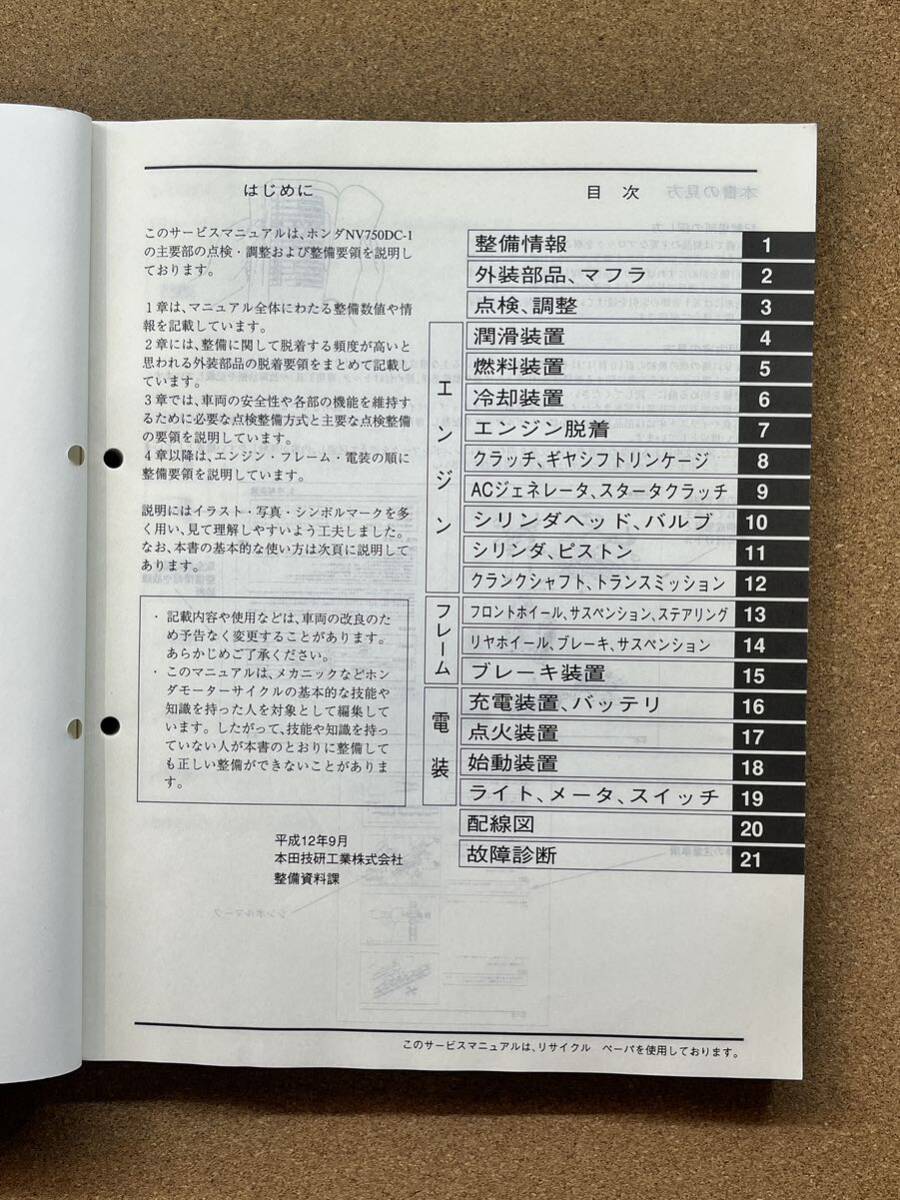 はじめに
このサービスマニュアルは、ホンダNV750DC-1
の主要部の点検・調整および整備要領を説明し
ております。
1章は、マニュアル全体にわたる整備数値や情
報を記載しています。
2章には、整備に関して脱着する頻度が高いと
思われる外装部品の脱着要領をまとめて記載し
ています。
3章では、車両の安全性や各部の機能を維持す
るために必要な点検整備方式と主要な点検整備
の要領を説明しています。
4章以降は、エンジン・フレーム・電装の順に
整備要領を説明しています。
説明にはイラスト・写真・シンボルマークを多
く用い、見て理解しやすいよう工夫しました。
なお、本書の基本的な使い方は次頁に説明して
あります。
・ 記載内容や使用などは、車両の改良のた
め予告なく変更することがあります。
あらかじめご了承ください。
・ このマニュアルは、メカニックなどホン
ダモーターサイクルの基本的な技能や
知識を持った人を対象として編集して
います。したがって、技能や知識を持っ
ていない人が本書のとおりに整備して
も正しい整備ができないことがありま
す。
平成12年9月
本田技研工業株式会社
整備資料課
目 次
整備情報 1
外装部品、マフラ 2
点検、調整 3
エンジン
潤滑装置 4
燃料装置 5
冷却装置 6
エンジン脱着 7
クラッチ、ギヤシフトリンケージ 8
ACジェネレータ、スタータクラッチ 9
シリンダヘッド、バルブ 10
シリンダ、ピストン 11
クランクシャフト、トランスミッション 12
フレーム
フロントホイール、サスペンション、ステアリング 13
リヤホイール、ブレーキ、サスペンション 14
ブレーキ装置 15
電装
充電装置、バッテリ 16
点火装置 17
始動装置 18
ライト、メータ、スイッチ 19
配線図 20
故障診断 21
このサービスマニュアルは、リサイクル ペーパを使用しております。